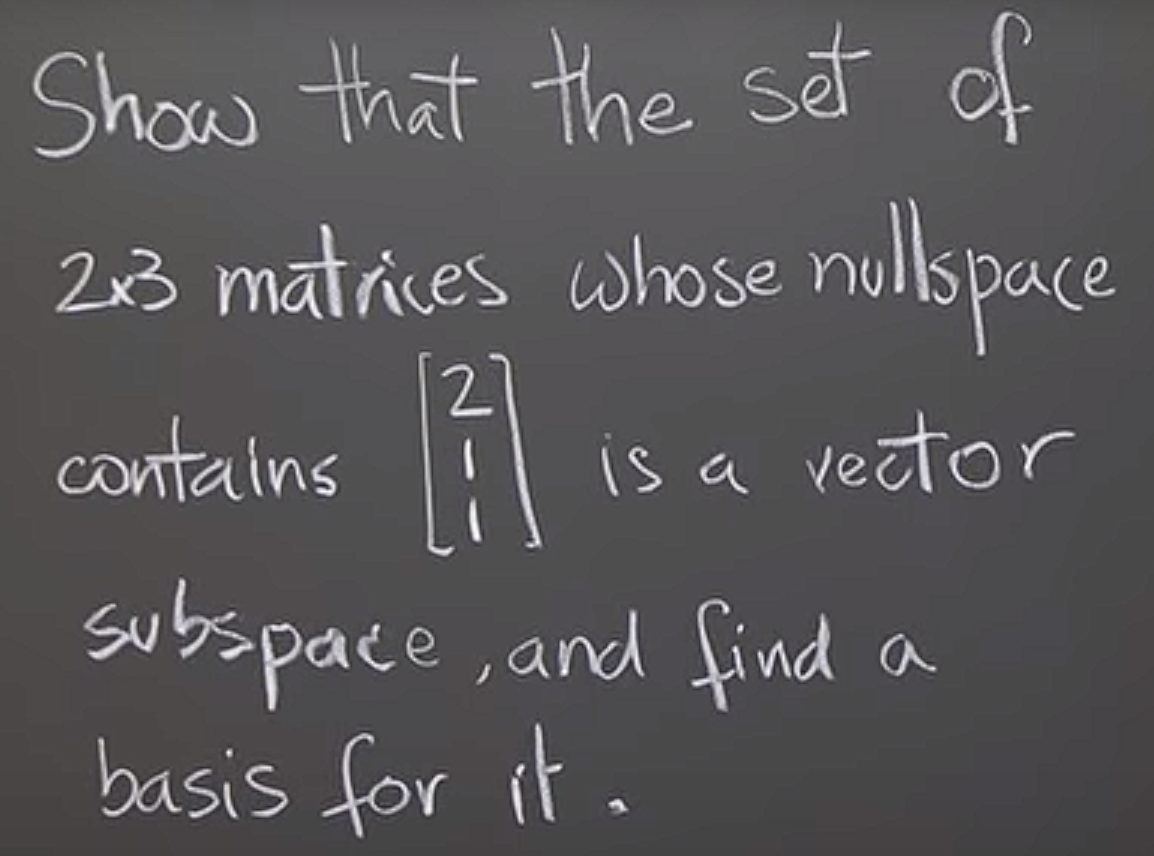 Show that the set of
2x3 matrices whose nullspace
contains [2 1 1] is a vector
subspace, and find a
basis for it.